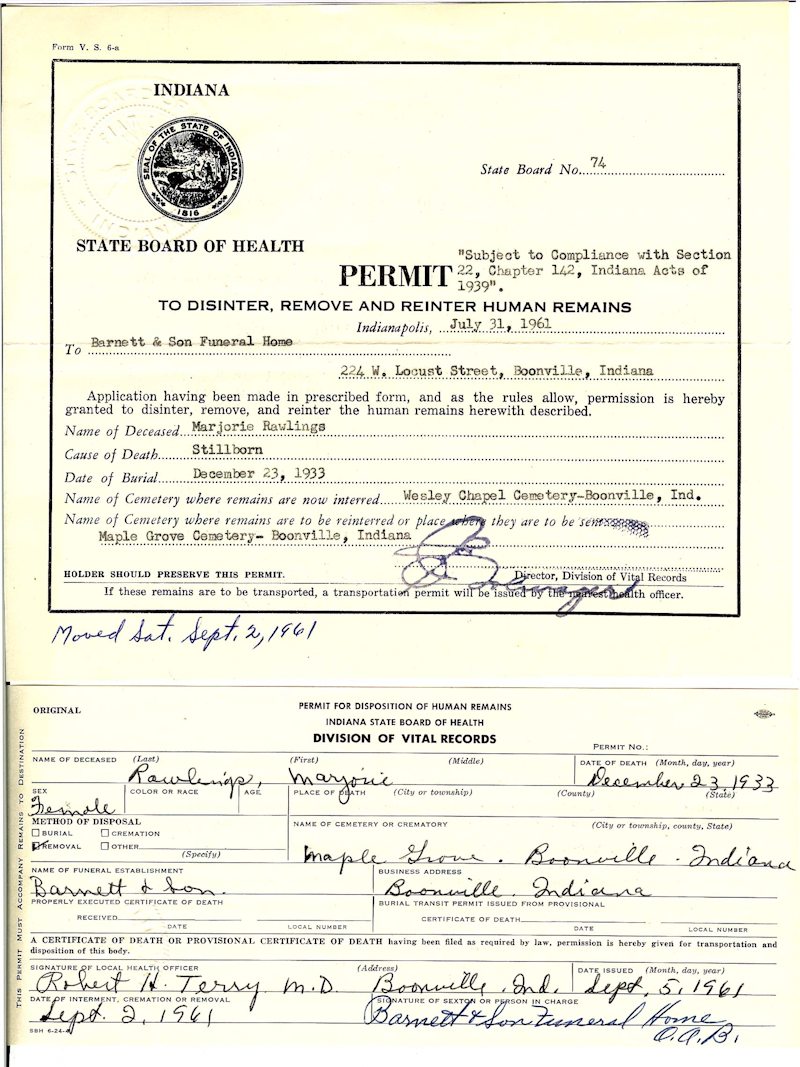 Form V. S. 6-a
INDIANA
SEAL OF THE STATE OF INDIANA
1816
State Board No. 74
STATE BOARD OF HEALTH
PERMIT "Subject to Compliance with Section
22, Chapter 142, Indiana Acts of
1939".
TO DISINTER, REMOVE AND REINTER HUMAN REMAINS
Indianapolis, July 31, 1961
To Barnett & Son Funeral Home
224 W. Locust Street, Boonville, Indiana
Application having been made in prescribed form, and as the rules allow, permission is hereby
granted to disinter, remove, and reinter the human remains herewith described.
Name of Deceased Marjorie Rawlings
Cause of Death Stillborn
Date of Burial December 23, 1933
Name of Cemetery where remains are now interred Wesley Chapel Cemetery-Boonville, Ind.
Name of Cemetery where remains are to be reinterred or place where they are to be sent
Maple Grove Cemetery- Boonville, Indiana
HOLDER SHOULD PRESERVE THIS PERMIT. Director, Division of Vital Records
If these remains are to be transported, a transportation permit will be issued by the nearest health officer.
Moved Sat. Sept. 2, 1961
THIS PERMIT MUST ACCOMPANY REMAINS TO DESTINATION
ORIGINAL
PERMIT FOR DISPOSITION OF HUMAN REMAINS
INDIANA STATE BOARD OF HEALTH
DIVISION OF VITAL RECORDS
PERMIT NO.:
NAME OF DECEASED (Last) (First) (Middle) DATE OF DEATH (Month, day, year)
Rawlings, Marjorie December 23, 1933
SEX COLOR OR RACE AGE PLACE OF DEATH (City or township) (County) (State)
Female
METHOD OF DISPOSAL NAME OF CEMETERY OR CREMATORY (City or township, county, State)
BURIAL CREMATION
REMOVAL OTHER
(Specify)
Maple Grove. Boonville. Indiana
NAME OF FUNERAL ESTABLISHMENT BUSINESS ADDRESS
Barnett & Son. Boonville, Indiana
PROPERLY EXECUTED CERTIFICATE OF DEATH BURIAL TRANSIT PERMIT ISSUED FROM PROVISIONAL
RECEIVED CERTIFICATE OF DEATH
DATE LOCAL NUMBER DATE LOCAL NUMBER
A CERTIFICATE OF DEATH OR PROVISIONAL CERTIFICATE OF DEATH having been filed as required by law, permission is hereby given for transportation and
disposition of this body.
SIGNATURE OF LOCAL HEALTH OFFICER (Address) DATE ISSUED (Month, day, year)
Robert H. Terry M.D. Boonville, Ind. Sept. 5, 1961
DATE OF INTERMENT, CREMATION OR REMOVAL SIGNATURE OF SEXTON OR PERSON IN CHARGE
Sept. 2, 1961 Barnett & Son Funeral Home
O.A.B.
SBH 6-24-4